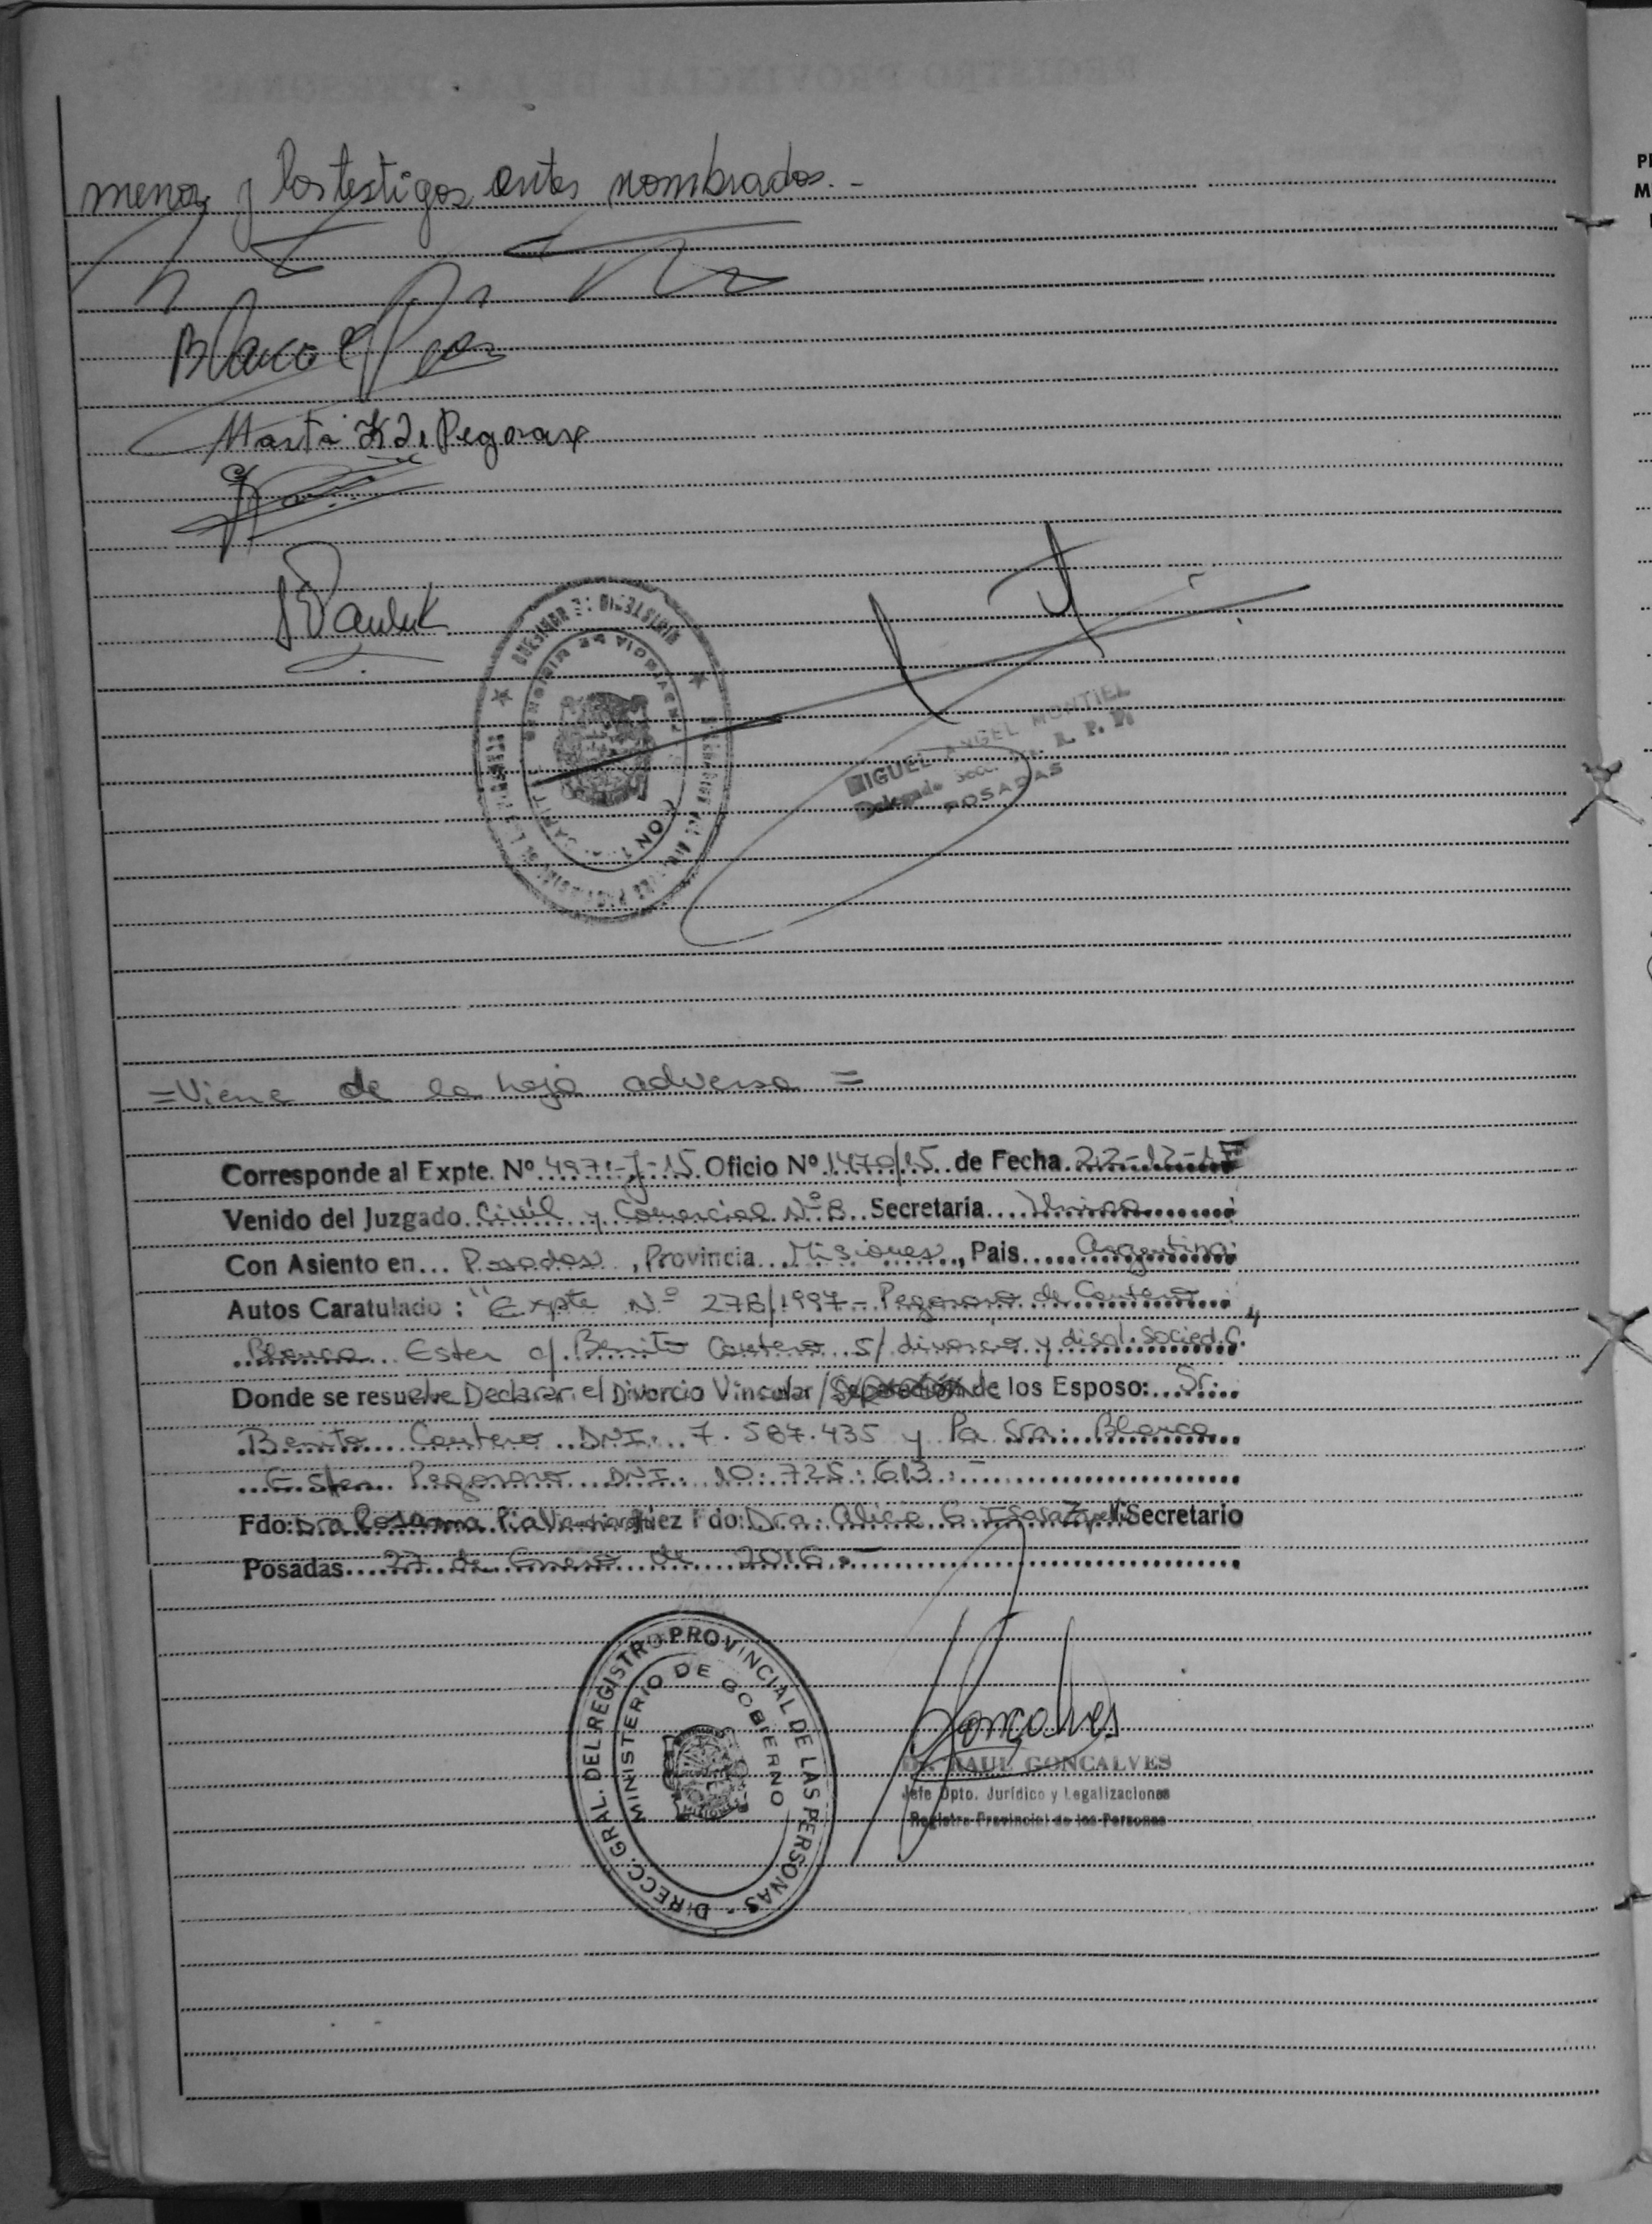 menor y los testigos antes nombrados.-
Marta K de Pegoraro
MIGUEL ANGEL MONTIEL
Delegado R. P. P.
POSADAS
=Viene de la hoja adversa =
Corresponde al Expte. Nº 4971-J-15 Oficio Nº 1470/15 de Fecha 22-12-15
Venido del Juzgado Civil y Comercial Nº 8 Secretaría Unica
Con Asiento en Posadas, Provincia Misiones, Pais Argentina
Autos Caratulado: "Expte Nº 278/1997- Pegoraro de Contero
Blanca Ester c/ Benito Contero s/ divorcio y disol. Socied. C."
Donde se resuelve Declarar el Divorcio Vincular / Separación de los Esposo: Sr.
Benito Contero DNI: 7.587.435 y la Sra: Blanca
Ester Pegoraro DNI: 10.725.613.-
Fdo: Dra Rosanna Pia Juez Fdo: Dra. Alicia G. Secretario
Posadas 27 de Enero de 2016.-
DIRECC. GRAL. DEL REGISTRO PROVINCIAL DE LAS PERSONAS -
MINISTERIO DE GOBIERNO
MISIONES
Goncalves
Dr. RAUL GONCALVES
Jefe Dpto. Jurídico y Legalizaciones
Registro Provincial de las Personas